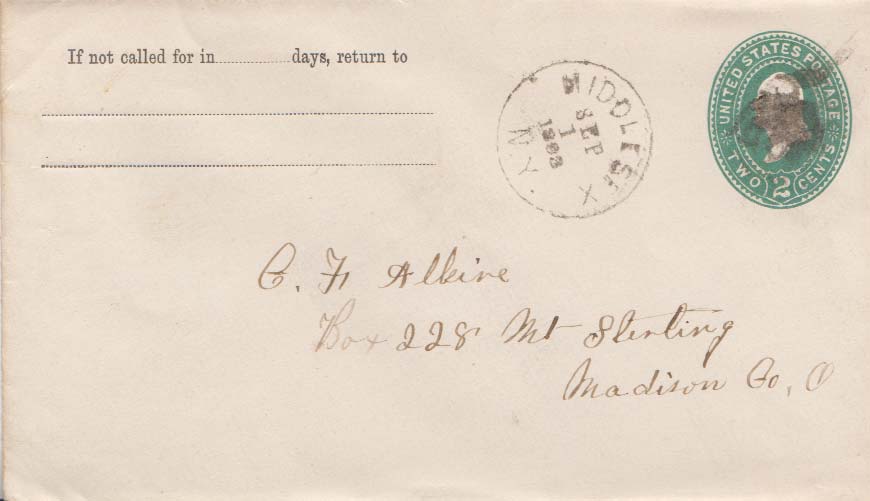 If not called for in ............ days, return to
MIDDLESEX
SEP
1
N.Y.
UNITED STATES POSTAGE
TWO 2 CENTS
C. F. Alkire
Box 228 Mt Sterling
Madison Co, O